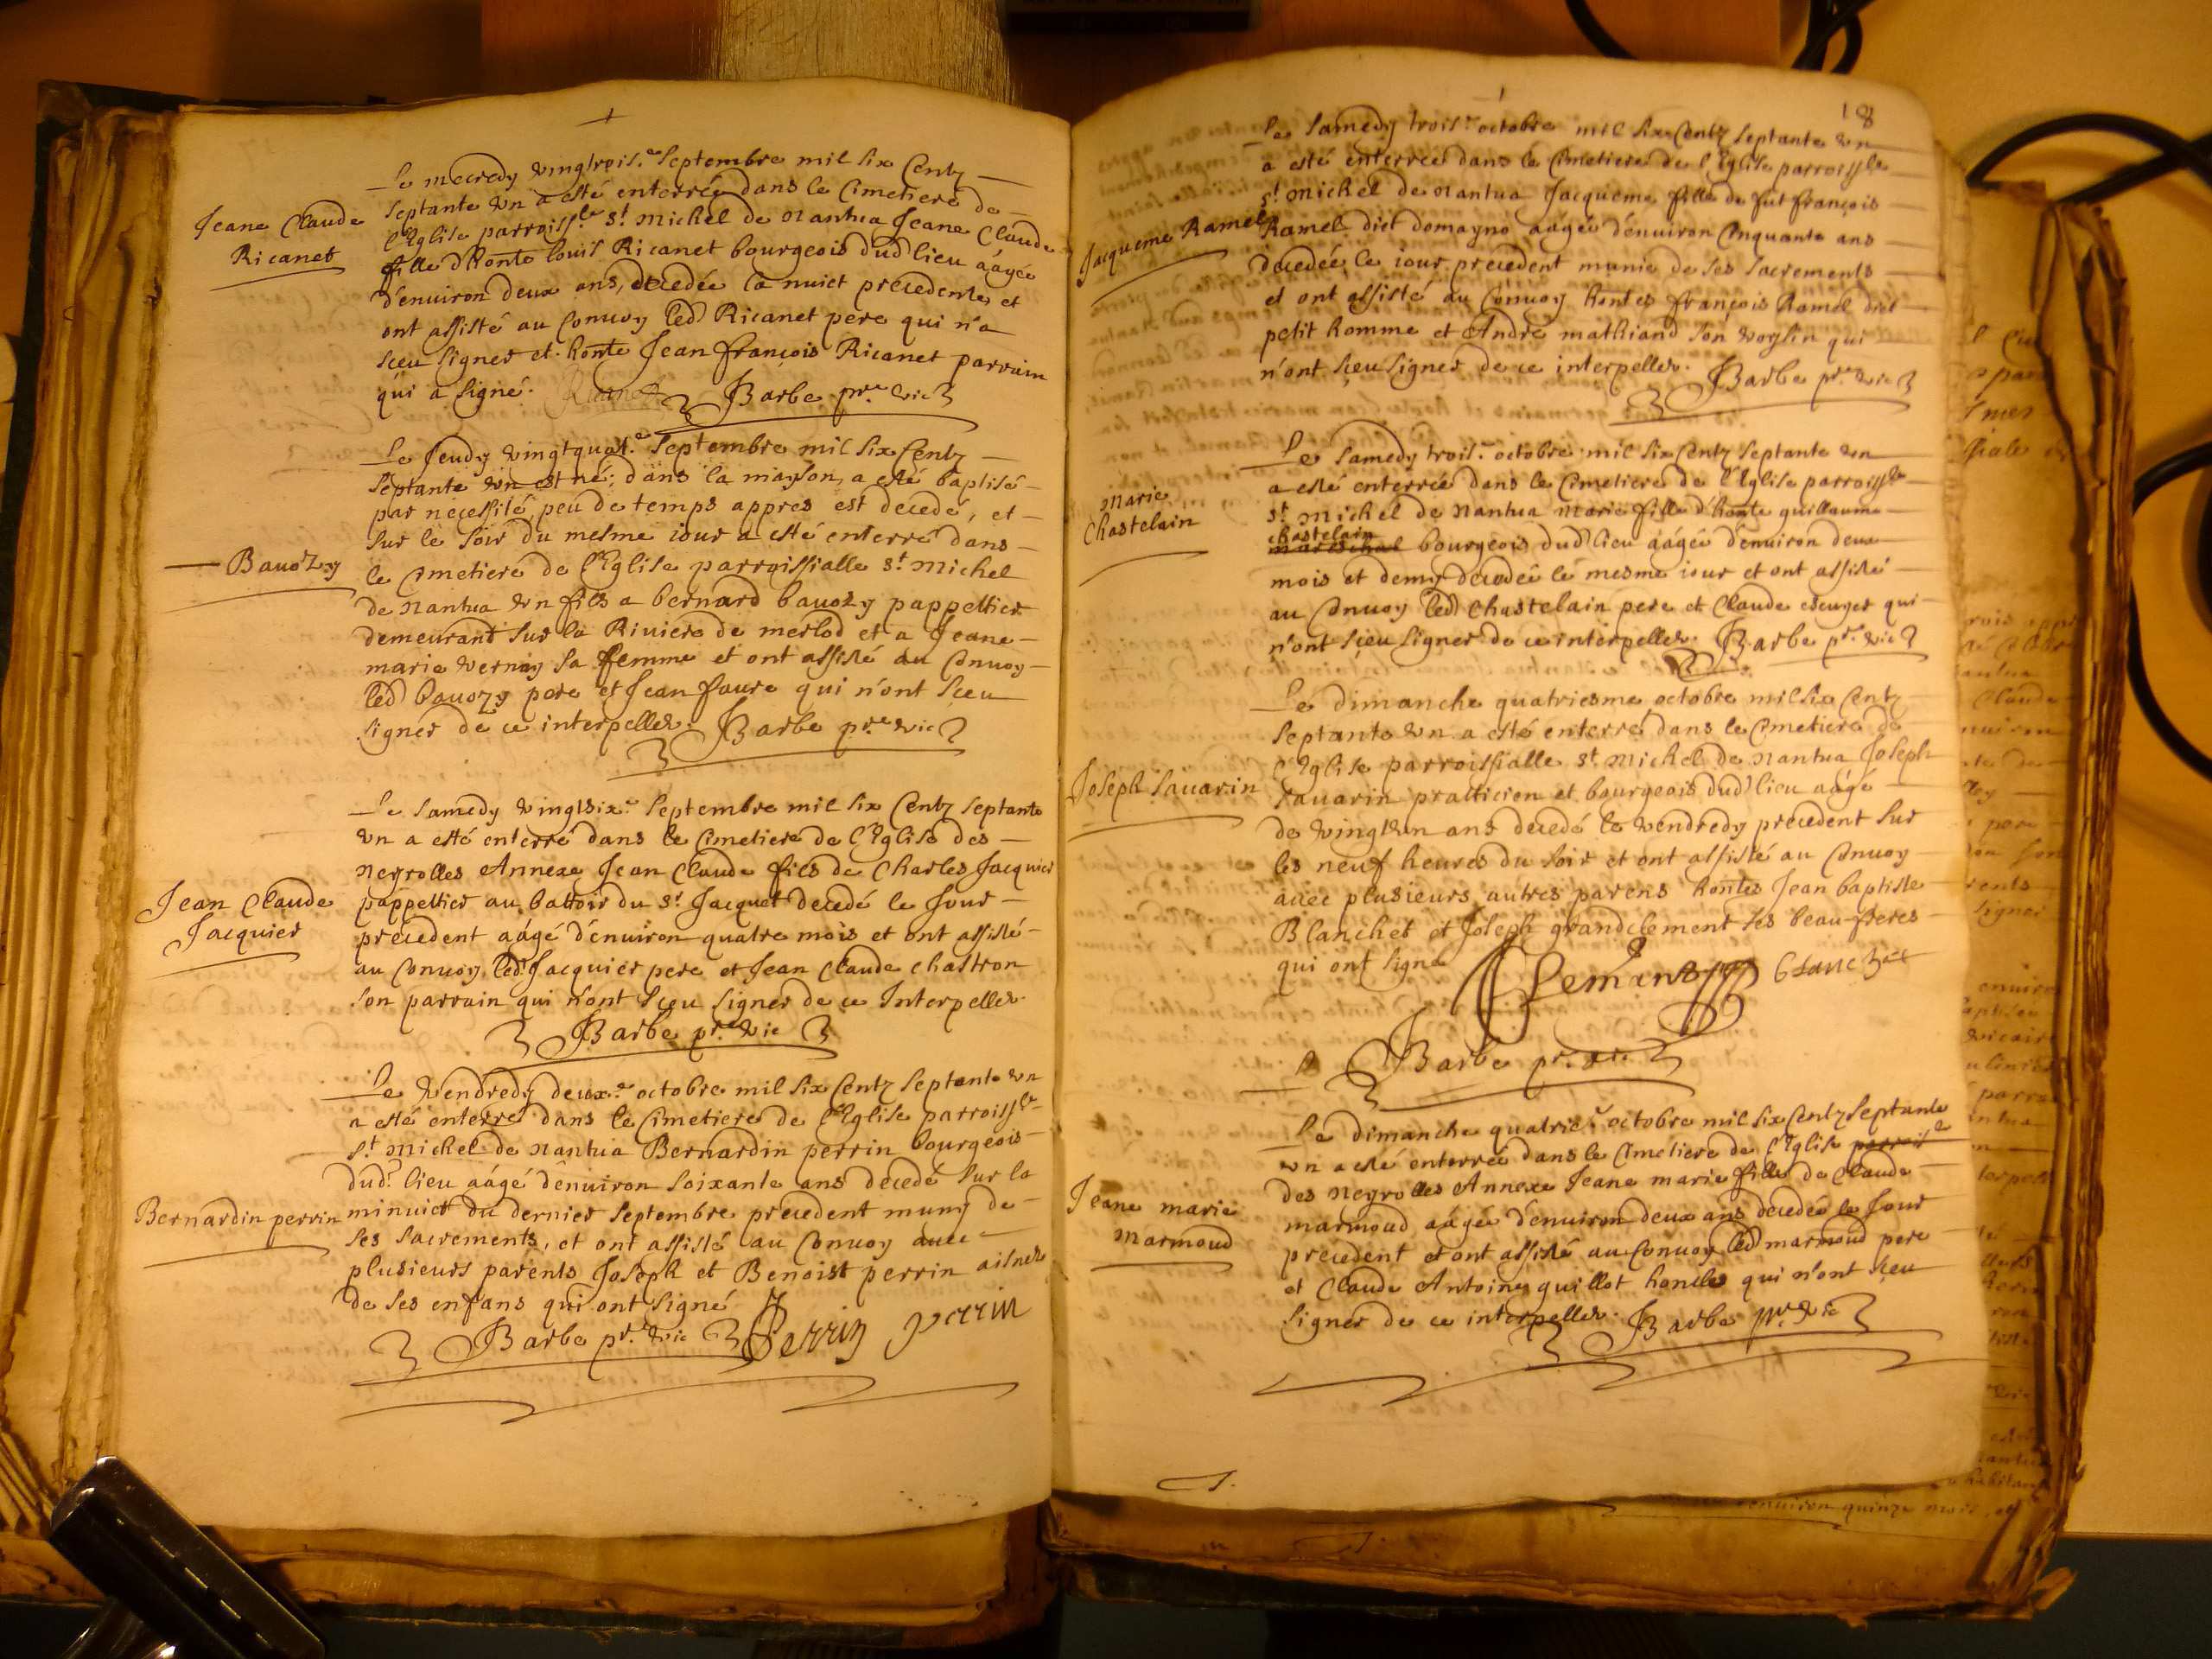 Jeane Claude
Ricanet
Le mecredy vingtrois.e Septembre mil six Centz
Septante vn a esté enterrée dans le Cimetiere de
l'Eglise parroiss.le S.t Michel de Nantua Jeane Claude
fille d'honte Louis Ricanet bourgeois dud lieu aâgée
d'enuiron deux ans, decedée la nuict precedente, et
ont assisté au Conuoy led Ricanet pere qui n'a
sceu signer et honte Jean françois Ricanet parrain
qui a signé. Ricanet Barbe pr.e vic
Bauozy
Le Jeudy vingtquat.e Septembre mil six Centz
Septante vn est né; dans la mayson, a esté baptisé
par necessité, peu de temps appres est decedé, et
sur le soir du mesme iour a esté enterré dans
le Cimetiere de l'Eglise parroissialle S.t Michel
de Nantua vn fils a bernard bauozy pappettier
demeurant sur la Riuiere de merlod et a Jeane
marie vernay sa femme et ont assisté au Conuoy
led bauozy pere et Jean faure qui n'ont sceu
signer de ce interpellez. Barbe pr.e vic
Jean Claude
Jacquier
Le samedy vingtsix.e Septembre mil six Centz septante
vn a esté enterré dans le Cimetiere de l'Eglise des
Neyrolles Annexe Jean Claude fils de Charles Jacquier
pappettier au battoir du S.r Jacquet decedé le Jour
precedent aâgé d'enuiron quatre mois et ont assisté
au Conuoy led. Jacquier pere et Jean Claude chastron
son parrain qui n'ont sceu signer de ce Interpellez.
Barbe pr.e vic
Bernardin perrin
Le Vendredy deux.e octobre mil six Centz Septante vn
a esté enterré dans le Cimetiere de l'Eglise parroiss.le
S.t Michel de Nantua Bernardin perrin bourgeois
dud. lieu aâgé d'enuiron soixante ans decedé sur la
minuict du dernier Septembre precedent muny de
ses sacrements, et ont assisté au Conuoy auec
plusieurs parents Joseph et Benoist perrin aisnez
de ses enfans qui ont signé
Barbe pr.e vic Perrin perrin
18
Jacqueme Ramel
Le Samedy trois.e octobre mil six Centz septante vn
a esté enterrée dans le Cimetiere de l'Eglise parroiss.le
S.t Michel de Nantua Jacqueme fille de fut françois
Ramel dict domagno aâgée d'enuiron Cinquante ans
decedée le iour precedent munie de ses sacrements
et ont assisté au Conuoy hontes françois Ramel dict
petit homme et André mathiand son voysin qui
n'ont sceu signer de ce interpellez. Barbe pr.e vic
Marie
Chastelain
Le Samedy trois.e octobre mil six Centz Septante vn
a esté enterrée dans le Cimetiere de l'Eglise parroiss.le
S.t Michel de Nantua Marie fille d'honte guillaume
chastelain
mareschal bourgeois dud lieu aâgée d'enuiron deux
mois et demy decedée le mesme iour et ont assisté
au Conuoy led Chastelain pere et Claude escuyer qui
n'ont sceu signer de ce interpellez. Barbe pr.e vic
Joseph Sauarin
Le dimanche quatriesme octobre mil six Centz
Septante vn a esté enterré dans le Cimetiere de
l'Eglise parroissialle S.t Michel de Nantua Joseph
Sauarin practicien et bourgeois dud lieu aâgé
de vingtvn ans decedé le vendredy precedent sur
les neuf heures du soir et ont assisté au Conuoy
auec plusieurs autres parens hontes Jean baptiste
Blanchet et Joseph grandclement ses beau-freres
qui ont signé
Barbe pr.e vic
Jeane marie
Marmoud
Le dimanche quatrie.e octobre mil six Centz Septante
vn a esté enterrée dans le Cimetiere de l'Eglise parroiss.le
des Neyrolles Annexe Jeane marie fille de Claude
marmoud aâgée d'enuiron deux ans decedée le Jour
precedent et ont assisté au Conuoy led marmoud pere
et Claude Antoine guillot qui n'ont sceu
signer de ce interpellez. Barbe pr.e vic
enuiron quinze mois, et